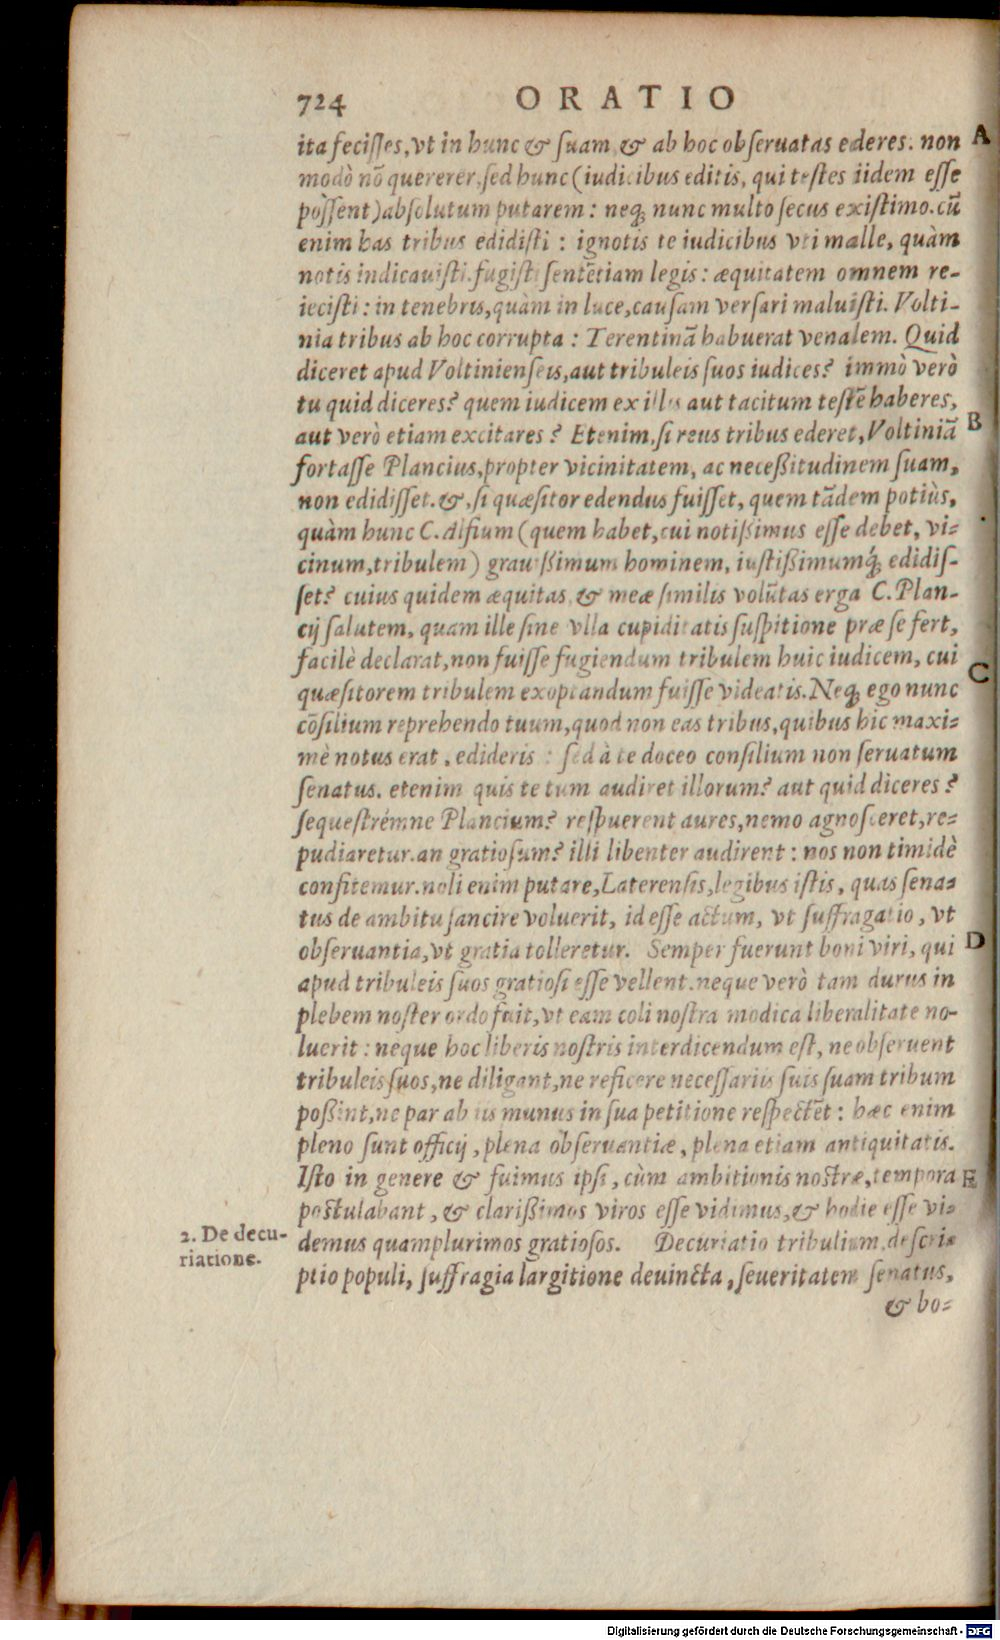 724 ORATIO
ita feciſſes, vt in hunc & ſuam, & ab hoc obſeruatas ederes. non A
modò nō quererer, ſed hunc (iudicibus editis, qui teſtes iidem eſſe
poſſent) abſolutum putarem: neq; nunc multo ſecus exiſtimo. cū
enim has tribus edidiſti: ignotis te iudicibus vti malle, quàm
notis indicauiſti. fugiſti ſentētiam legis: æquitatem omnem re-
ieciſti: in tenebris, quàm in luce, cauſam verſari maluiſti. Volti-
nia tribus ab hoc corrupta: Terentinā habuerat venalem. Quid
diceret apud Voltinienſeis, aut tribuleis ſuos iudices? immò verò
tu quid diceres? quem iudicem ex illis aut tacitum teſtē haberes,
aut verò etiam excitares? Etenim, ſi reus tribus ederet, Voltiniā B
fortaſſe Plancius, propter vicinitatem, ac neceßitudinem ſuam,
non edidiſſet. &, ſi quæſitor edendus fuiſſet, quem tādem potiùs,
quàm hunc C. Alfium (quem habet, cui notißimus eſſe debet, vi-
cinum, tribulem) grauißimum hominem, iuſtißimumq́; edidiſ-
ſet? cuius quidem æquitas, & meæ ſimilis volūtas erga C. Plan-
cij ſalutem, quam ille ſine vlla cupiditatis ſuſpitione præ ſe fert,
facilè declarat, non fuiſſe fugiendum tribulem huic iudicem, cui C
quæſitorem tribulem exoptandum fuiſſe videatis. Neq; ego nunc
cōſilium reprehendo tuum, quod non eas tribus, quibus hic maxi-
mè notus erat, edideris: ſed à te doceo conſilium non ſeruatum
ſenatus. etenim quis te tum audiret illorum? aut quid diceres?
ſequeſtrémne Plancium? reſpuerent aures, nemo agnoſceret, re-
pudiaretur. an gratioſum? illi libenter audirent: nos non timidè
confitemur. noli enim putare, Laterenſis, legibus iſtis, quas ſena-
tus de ambitu ſancire voluerit, id eſſe actum, vt ſuffragatio, vt
obſeruantia, vt gratia tolleretur. Semper fuerunt boni viri, qui D
apud tribuleis ſuos gratioſi eſſe vellent. neque verò tam durus in
plebem noſter ordo fuit, vt eam coli noſtra modica liberalitate no-
luerit: neque hoc liberis noſtris interdicendum eſt, ne obſeruent
tribuleis ſuos, ne diligant, ne reficere neceſſariis ſuis ſuam tribum
poßint, ne par ab iis munus in ſua petitione reſpectēt: hæc enim
pleno ſunt officij, plena obſeruantiæ, plena etiam antiquitatis.
Iſto in genere & fuimus ipſi, cùm ambitionis noſtræ, tempora E
poſtulabant, & clarißimos viros eſſe vidimus, & hodie eſſe vi-
demus quamplurimos gratioſos. Decuriatio tribulium, deſcri-
ptio populi, ſuffragia largitione deuincta, ſeueritatem ſenatus,
& bo-
2. De decu-
riatione.
Digitalisierung gefördert durch die Deutsche Forschungsgemeinschaft - DFG